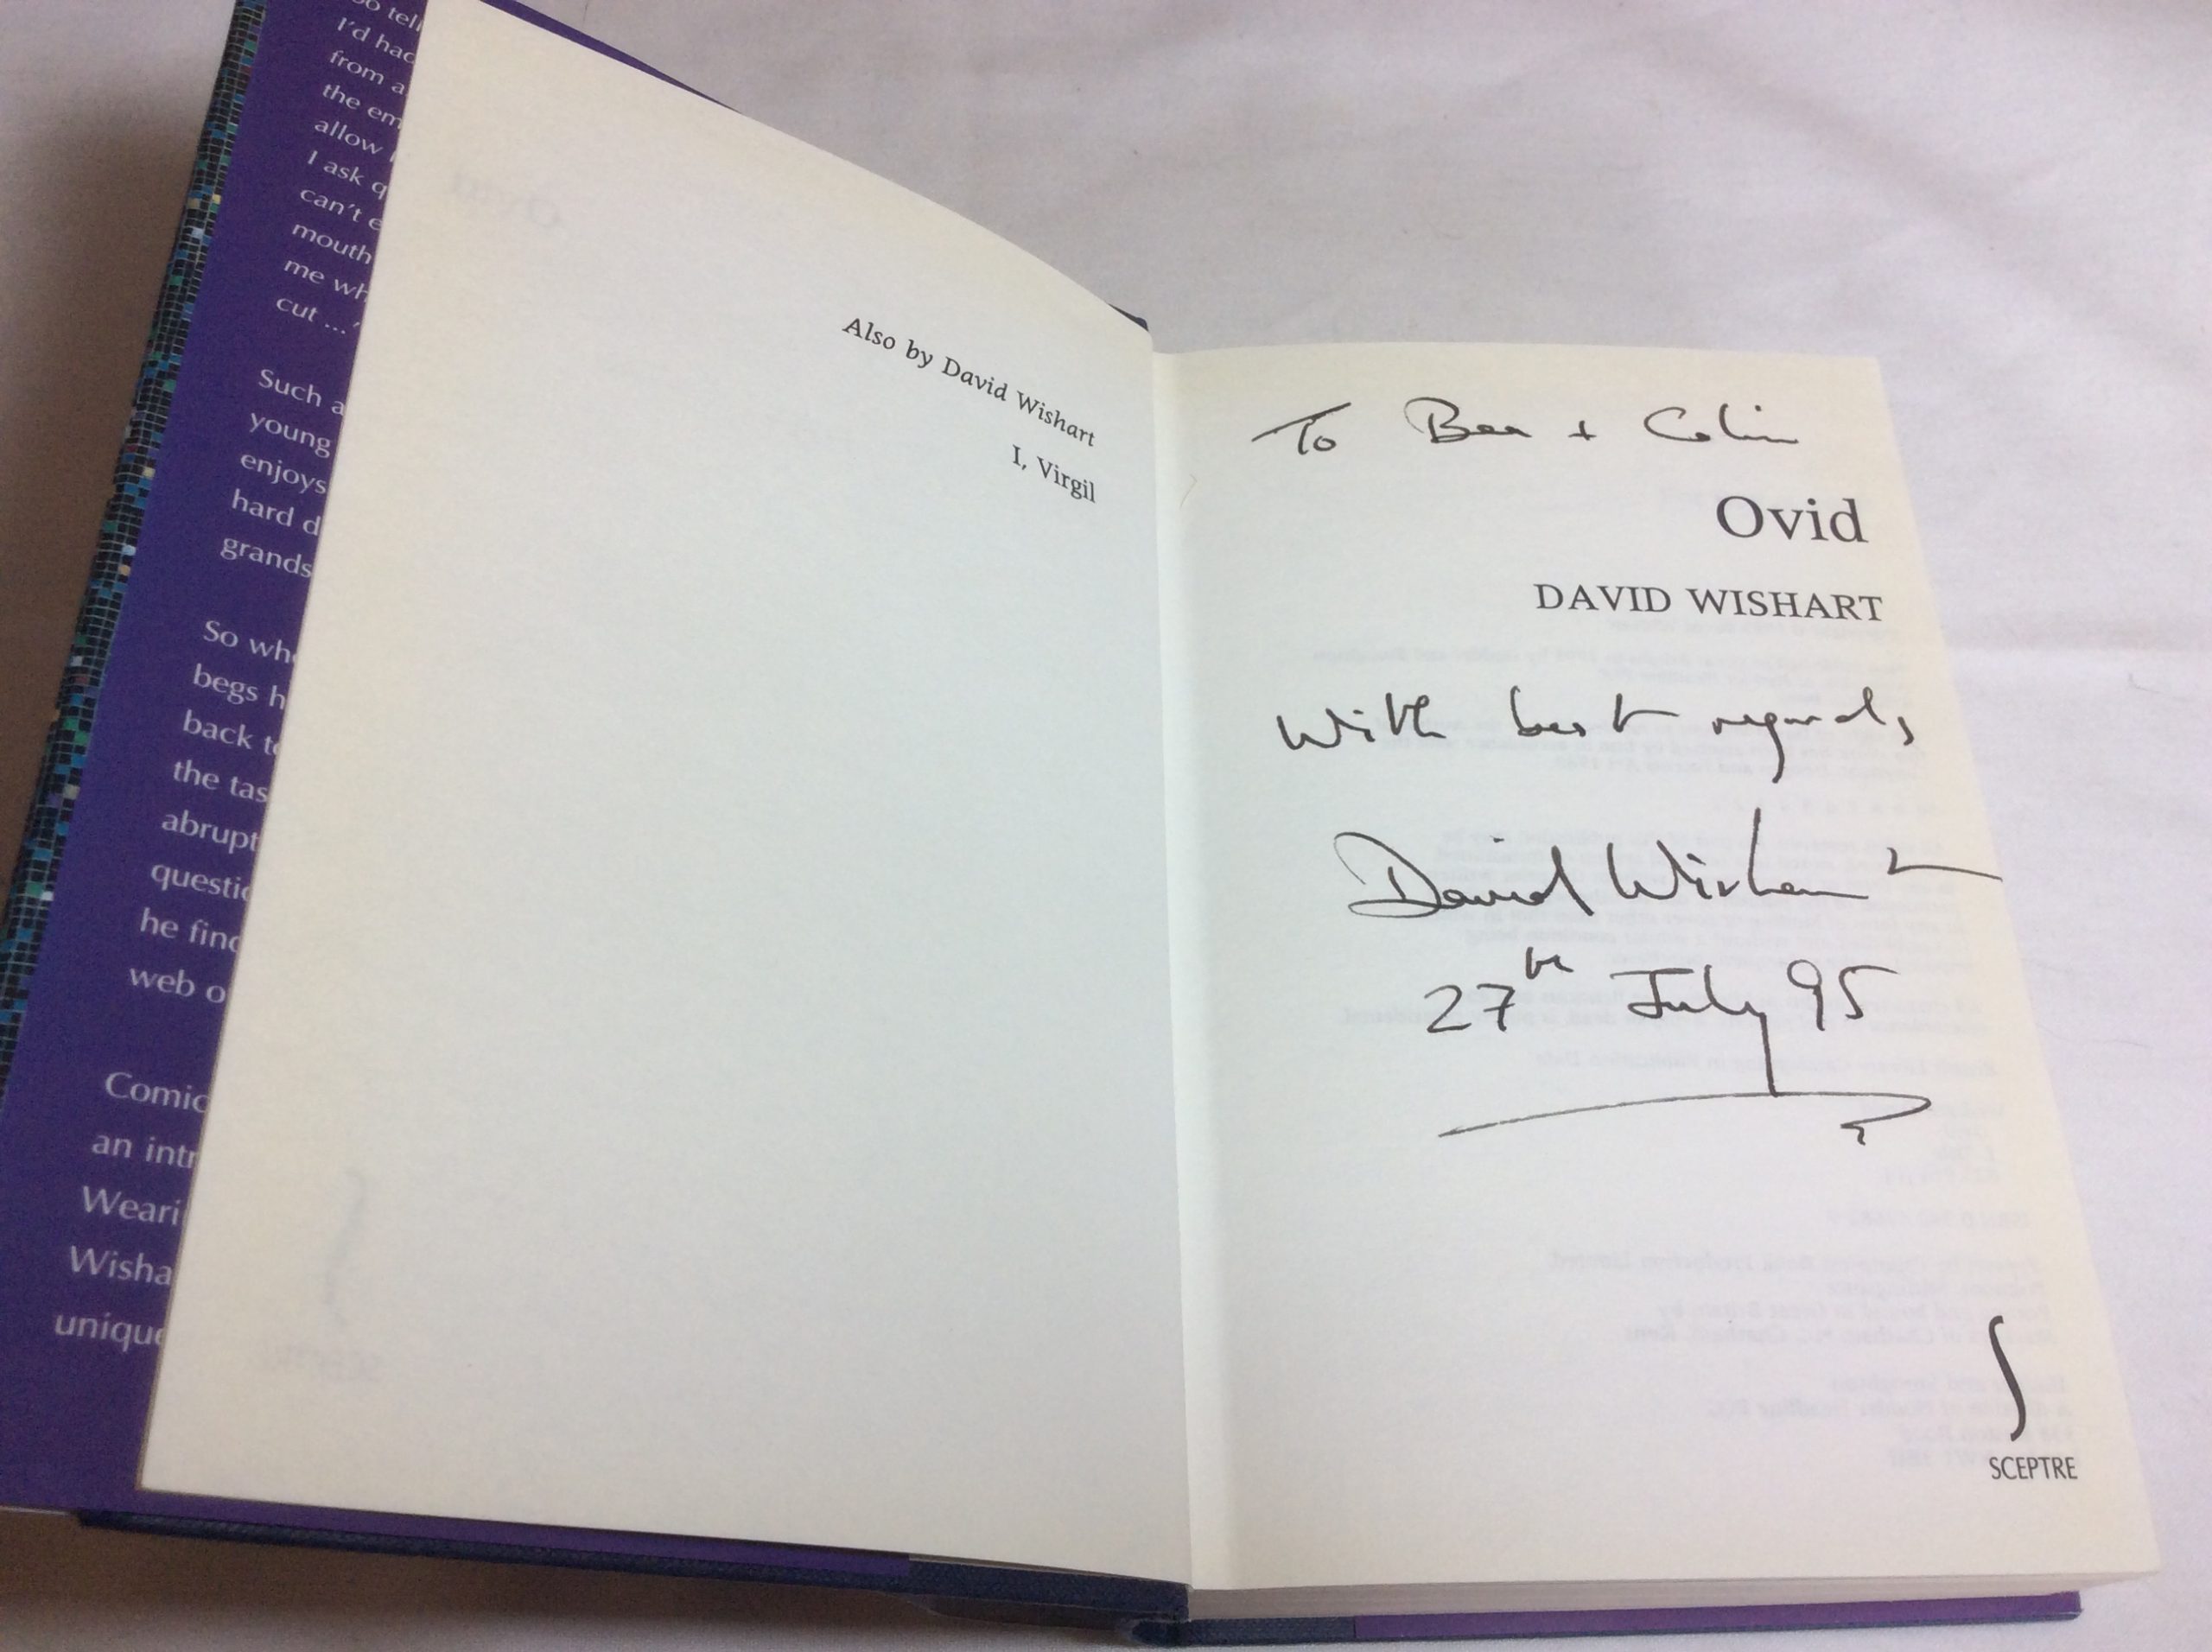 I'd had
from a
the em
allow
I ask q
can't e
mouth
me wh
cut ...'
Such a
young
enjoys
hard d
grands
So who
begs h
back to
the tas
abrupt
questio
he find
web o
Comic
an intr
Weari
Wisha
unique
Also by David Wishart
I, Virgil
To Bea + Colin
Ovid
DAVID WISHART
With best regards,
David Wishart
27th July 95
SCEPTRE